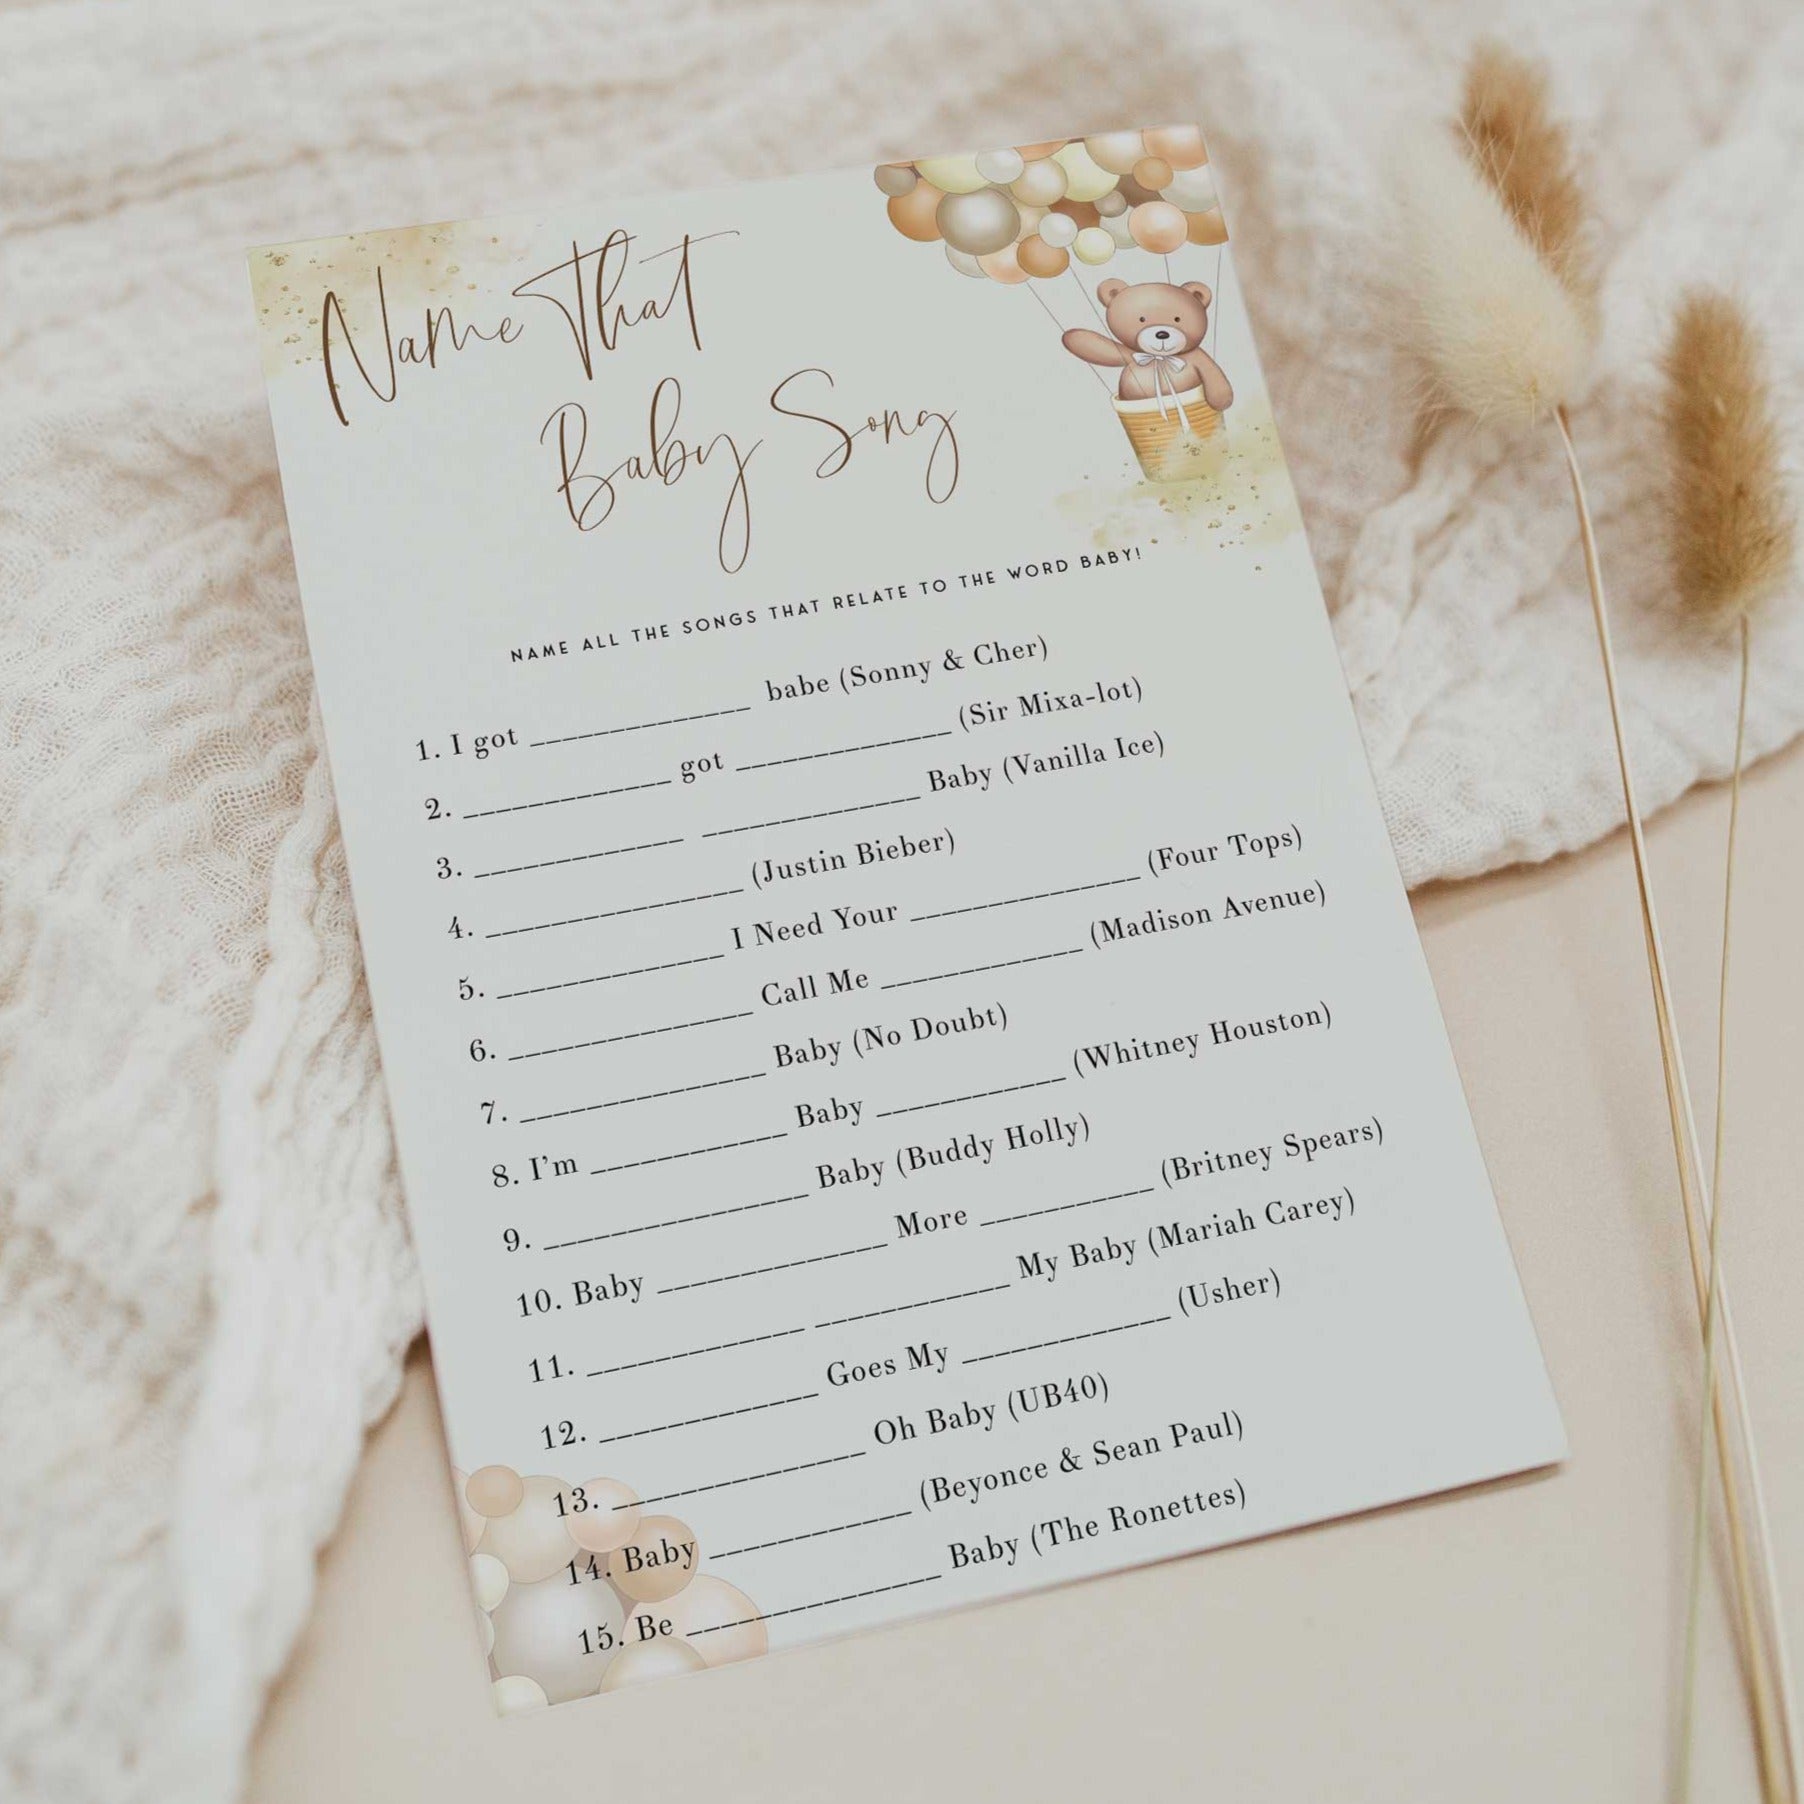 Name That
Baby Song
NAME ALL THE SONGS THAT RELATE TO THE WORD BABY!
1. I got ______________ babe (Sonny & Cher)
2. ______________ got ______________ (Sir Mixa-lot)
3. ______________ ______________ Baby (Vanilla Ice)
4. _________________ (Justin Bieber)
5. ______________ I Need Your ______________ (Four Tops)
6. _________________ Call Me ______________ (Madison Avenue)
7. _________________ Baby (No Doubt)
8. I'm ______________ Baby ______________ (Whitney Houston)
9. __________________ Baby (Buddy Holly)
10. Baby ________________ More ____________ (Britney Spears)
11. _______________ ______________ My Baby (Mariah Carey)
12. _______________ Goes My ______________ (Usher)
13. _________________ Oh Baby (UB40)
14. Baby ______________ (Beyonce & Sean Paul)
15. Be __________________ Baby (The Ronettes)